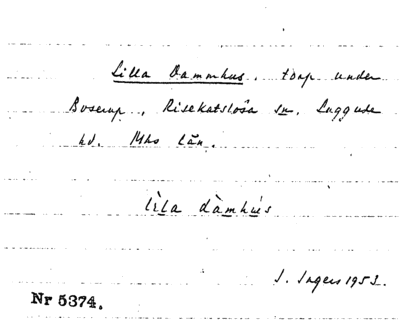 Lilla Dammhus, torp under
Boserup, Risekatslösa sn, Luggude
hd. Mhs län.
lìla dàmhús
I. Ingers 1953.
Nr 5374.